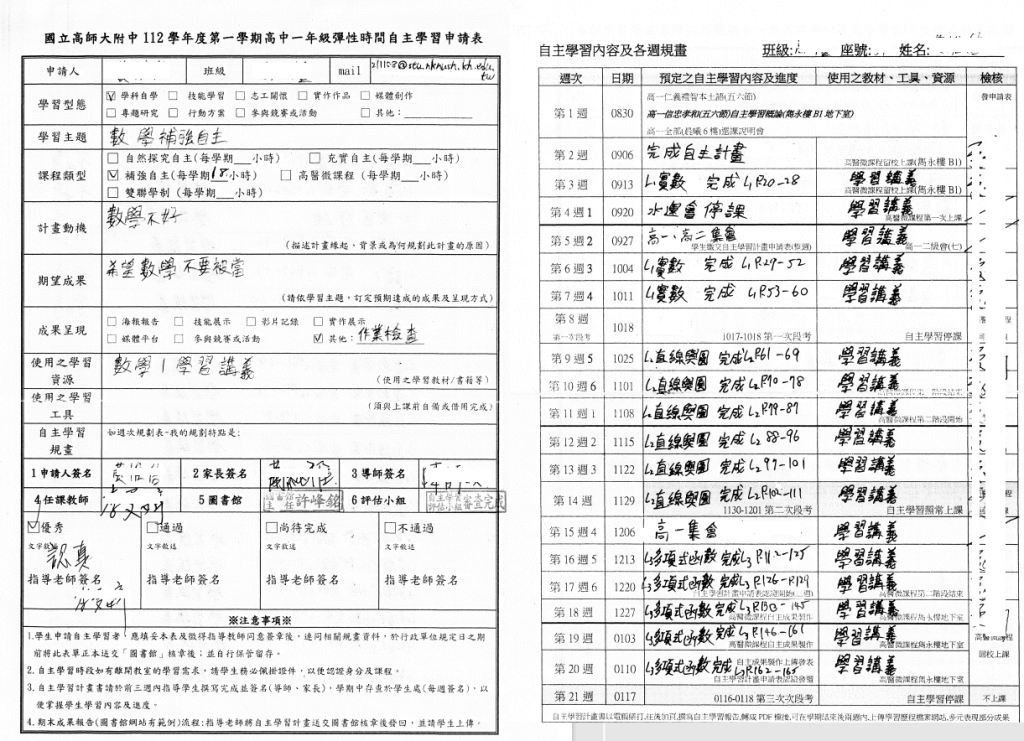 國立高師大附中 112 學年度第一學期高中一年級彈性時間自主學習申請表
申請人 班級 mail
學習型態 ☑ 學科自學 □ 技能學習 □ 志工關懷 □ 實作作品 □ 媒體創作
□ 專題研究 □ 行動方案 □ 參與競賽或活動 □ 其他:
學習主題 數學補強自主
課程類型 □ 自然探究自主(每學期__小時) □ 充實自主(每學期__小時)
☑ 補強自主(每學期18小時) □ 高醫微課程 (每學期__小時)
□ 雙聯學制 (每學期__小時)
計畫動機 數學不好
(描述計畫緣起、背景或為何規劃此計畫的原因)
期望成果 希望數學不要被當
(請依學習主題,訂定預期達成的成果及呈現方式)
成果呈現 □ 海報報告 □ 技能展示 □ 影片記錄 □ 實作展示
□ 媒體平台 □ 參與競賽或活動 ☑ 其他: 作業檢查
使用之學習資源 數學1學習講義 (使用之學習教材/書籍等)
使用之學習工具 (須與上課前自備或借用完成)
自主學習規畫 如週次規劃表-我的規劃特點是:
1 申請人簽名 2 家長簽名 3 導師簽名
4 任課教師 5 圖書館 許峰銘 6 評估小組 審查完成
☑優秀 □通過 □尚待完成 □不通過
文字敘述 文字敘述 文字敘述 文字敘述
認真
指導老師簽名 指導老師簽名 指導老師簽名 指導老師簽名
※注意事項※
1.學生申請自主學習者,應填妥本表及徵得指導教師同意簽章後,連同相關規畫資料,於行政單位規定日之期
前將此表單正本送交「圖書館」核章後;並自行保管留存。
2.自主學習時段如有離開教室的學習需求,請學生務必佩掛證件,以便認證身分及課程。
3.自主學習計畫書請於前三週內指導學生撰寫完成並簽名(導師、家長),學期中存查於學生處(每週簽名),以
便掌握學生學習內容及進度。
4.期末成果報告(圖書館網站有範例)流程:指導老師將自主學習計畫送交圖書館核章後發回,並請學生上傳。
自主學習內容及各週規畫 班級: 座號: 姓名:
週次 日期 預定之自主學習內容及進度 使用之教材、工具、資源 檢核
第 1 週 0830 高一仁義禮智本土語(五六節) 發申請表
高一信忠孝和(五六節)自主學習概論(雋永樓 B1 地下室)
高一全部(晨曦 6 樓)選課說明會
第 2 週 0906 完成自主計畫 高醫微課程留校上課(雋永樓 B1)
第 3 週 0913 L1實數 完成L1P20-28 學習講義 高醫微課程留校上課(雋永樓 B1)
第 4 週 1 0920 水運會停課 學習講義 高醫微課程第一次上課
第 5 週 2 0927 高一、高二集會 學生繳交自主學習計畫申請表(整週) 學習講義 高一二級會(七)
第 6 週 3 1004 L1實數 完成L1P29-52 學習講義
第 7 週 4 1011 L1實數 完成L1P53-60 學習講義
第 8 週 第一次段考 1018 1017-1018 第一次段考 自主學習停課
第 9 週 5 1025 L2直線與圓 完成L2P61-69 學習講義
第 10 週 6 1101 L2直線與圓 完成L2P70-78 學習講義
第 11 週 1 1108 L2直線與圓 完成L2P79-87 學習講義 高醫微課程第二階段開始
第 12 週 2 1115 L2直線與圓 完成L2 88-96 學習講義
第 13 週 3 1122 L2直線與圓 完成L2 97-101 學習講義
第 14 週 1129 L2直線與圓 完成L2P102-111 學習講義
1130-1201 第二次段考 自主學習照常上課
第 15 週 4 1206 高一集會 學習講義
第 16 週 5 1213 L3多項式函數 完成L3P112-125 學習講義
第 17 週 6 1220 L3多項式函數 完成L3P126-P129 學習講義 高醫微課程第二階段結束
第 18 週 1227 L3多項式函數 完成L3P130-145 高醫微課程自主成果製作 學習講義
第 19 週 0103 L3多項式函數 完成L3P146-161 高醫微課程自主成果製作 學習講義 回校上課
第 20 週 0110 L3多項式函數 完成L3P162-165 自主成果製作上傳發表 學習講義
第 21 週 0117 0116-0118 第三次次段考 自主學習停課 不上課